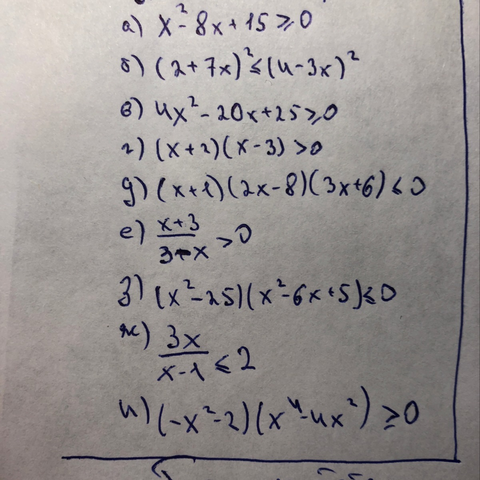 а) x² - 8x + 15 ≥ 0
б) (2 + 7x)² ≤ (4 - 3x)²
в) 4x² - 20x + 25 ≥ 0
г) (x + 2)(x - 3) > 0
д) (x + 1)(2x - 8)(3x + 6) ≤ 0
е) (x + 3)/(3 - x) > 0
з) (x² - 25)(x² - 6x + 5) ≤ 0
ж) 3x/(x - 1) ≤ 2
и) (-x² - 2)(x⁴ - 4x²) ≥ 0